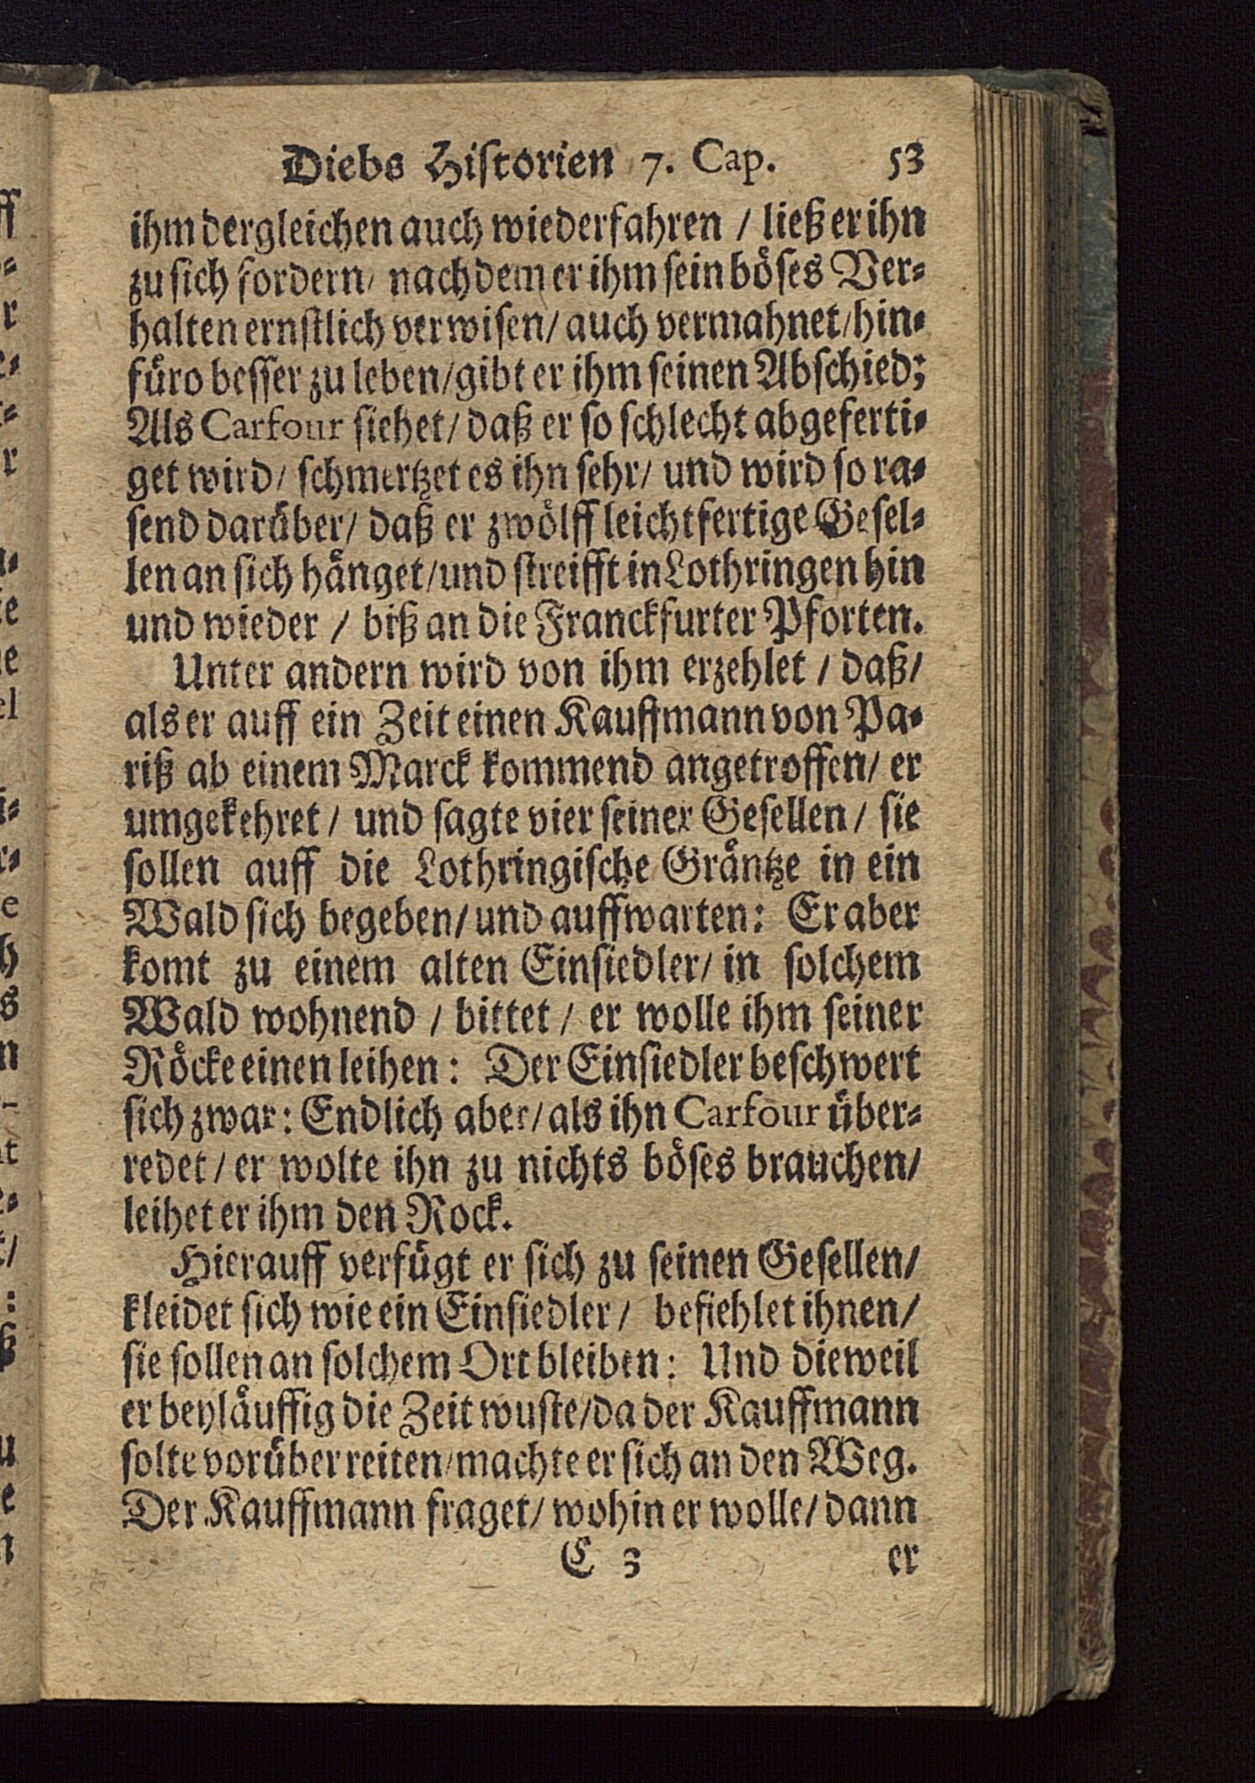 Diebs Historien 7. Cap. 53
ihm dergleichen auch wiederfahren / ließ er ihn
zu sich fordern / nachdem er ihm sein böses Ver-
halten ernstlich verwisen / auch vermahnet / hin-
füro besser zu leben / gibt er ihm seinen Abschied;
Als Carfour siehet / daß er so schlecht abgeferti-
get wird / schmertzet es ihn sehr / und wird so ra-
send darüber / daß er zwölff leichtfertige Gesel-
len an sich hänget / und streifft in Lothringen hin
und wieder / biß an die Franckfurter Pforten.
Unter andern wird von ihm erzehlet / daß /
als er auff ein Zeit einen Kauffmann von Pa-
riß ab einem Marck kommend angetroffen / er
umgekehret / und sagte vier seiner Gesellen / sie
sollen auff die Lothringische Gräntze in ein
Wald sich begeben / und auffwarten: Er aber
komt zu einem alten Einsiedler / in solchem
Wald wohnend / bittet / er wolle ihm seiner
Röcke einen leihen: Der Einsiedler beschwert
sich zwar: Endlich aber / als ihn Carfour über-
redet / er wolte ihn zu nichts böses brauchen /
leihet er ihm den Rock.
Hierauff verfügt er sich zu seinen Gesellen /
kleidet sich wie ein Einsiedler / befiehlet ihnen /
sie sollen an solchem Ort bleiben: Und dieweil
er beyläuffig die Zeit wuste / da der Kauffmann
solte vorüber reiten / machte er sich an den Weg.
Der Kauffmann fraget / wohin er wolle / dann
C 3 er